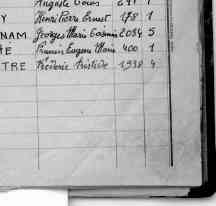 Auguste Louis 241 1
Y Henri Pierre Ernest 178 1
NAM Georges Marie Casimir 2034 5
HE Francis Eugène Marie 400 1
TRE Frédéric Aristide 1938 4